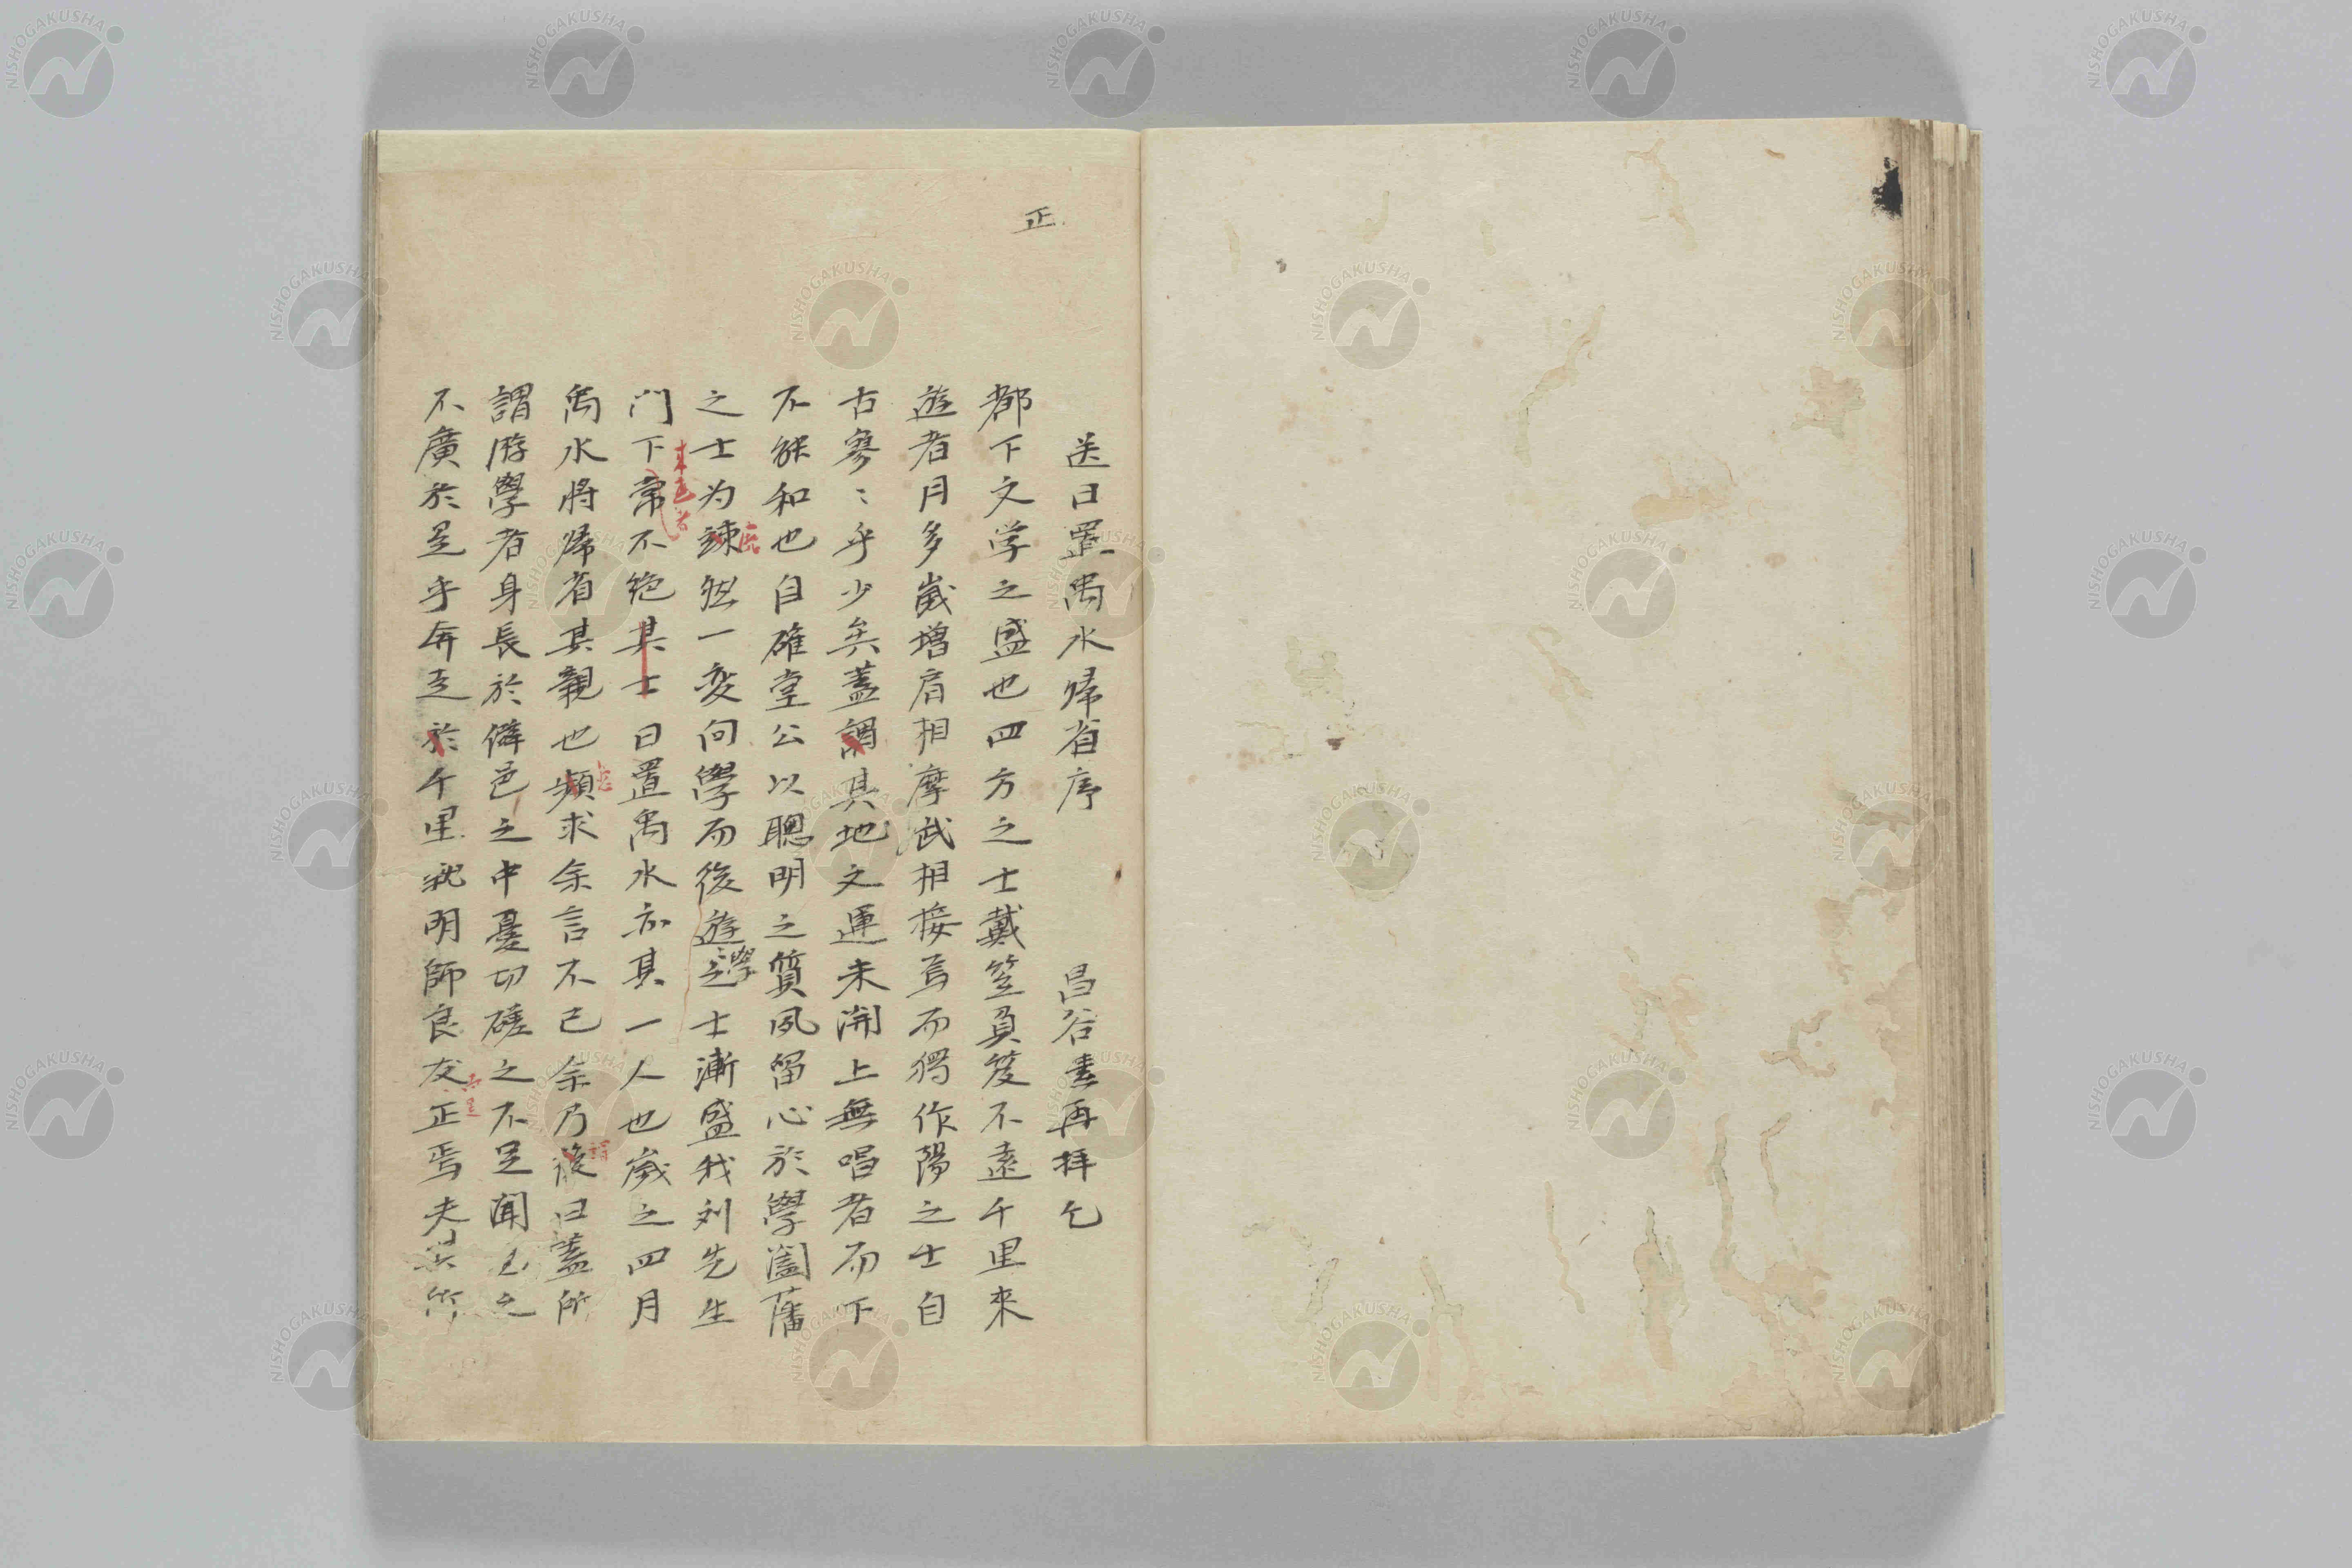 正
送日置禹水帰省序 昌谷 再拝乞
都下文学之盛也四方之士戴笠負笈不遠千里來
遊者月多歳増肩相摩武相接焉而獨作陽之士自
古寥〻乎少矣蓋謂其地文運未開上無唱者而下
不能和也自確堂公以聰明之質夙留心於學闔藩
之士为竦然一変向學而後遊学之士漸盛我刘先生
門下常不絶其士日置禹水亦其一人也歳之四月
禹水将帰省其親也頻求余言不已余乃後曰蓋所
謂游學者身長於僻邑之中憂切磋之不足聞見之
不廣於是乎奔走於千里就明師良友正焉夫